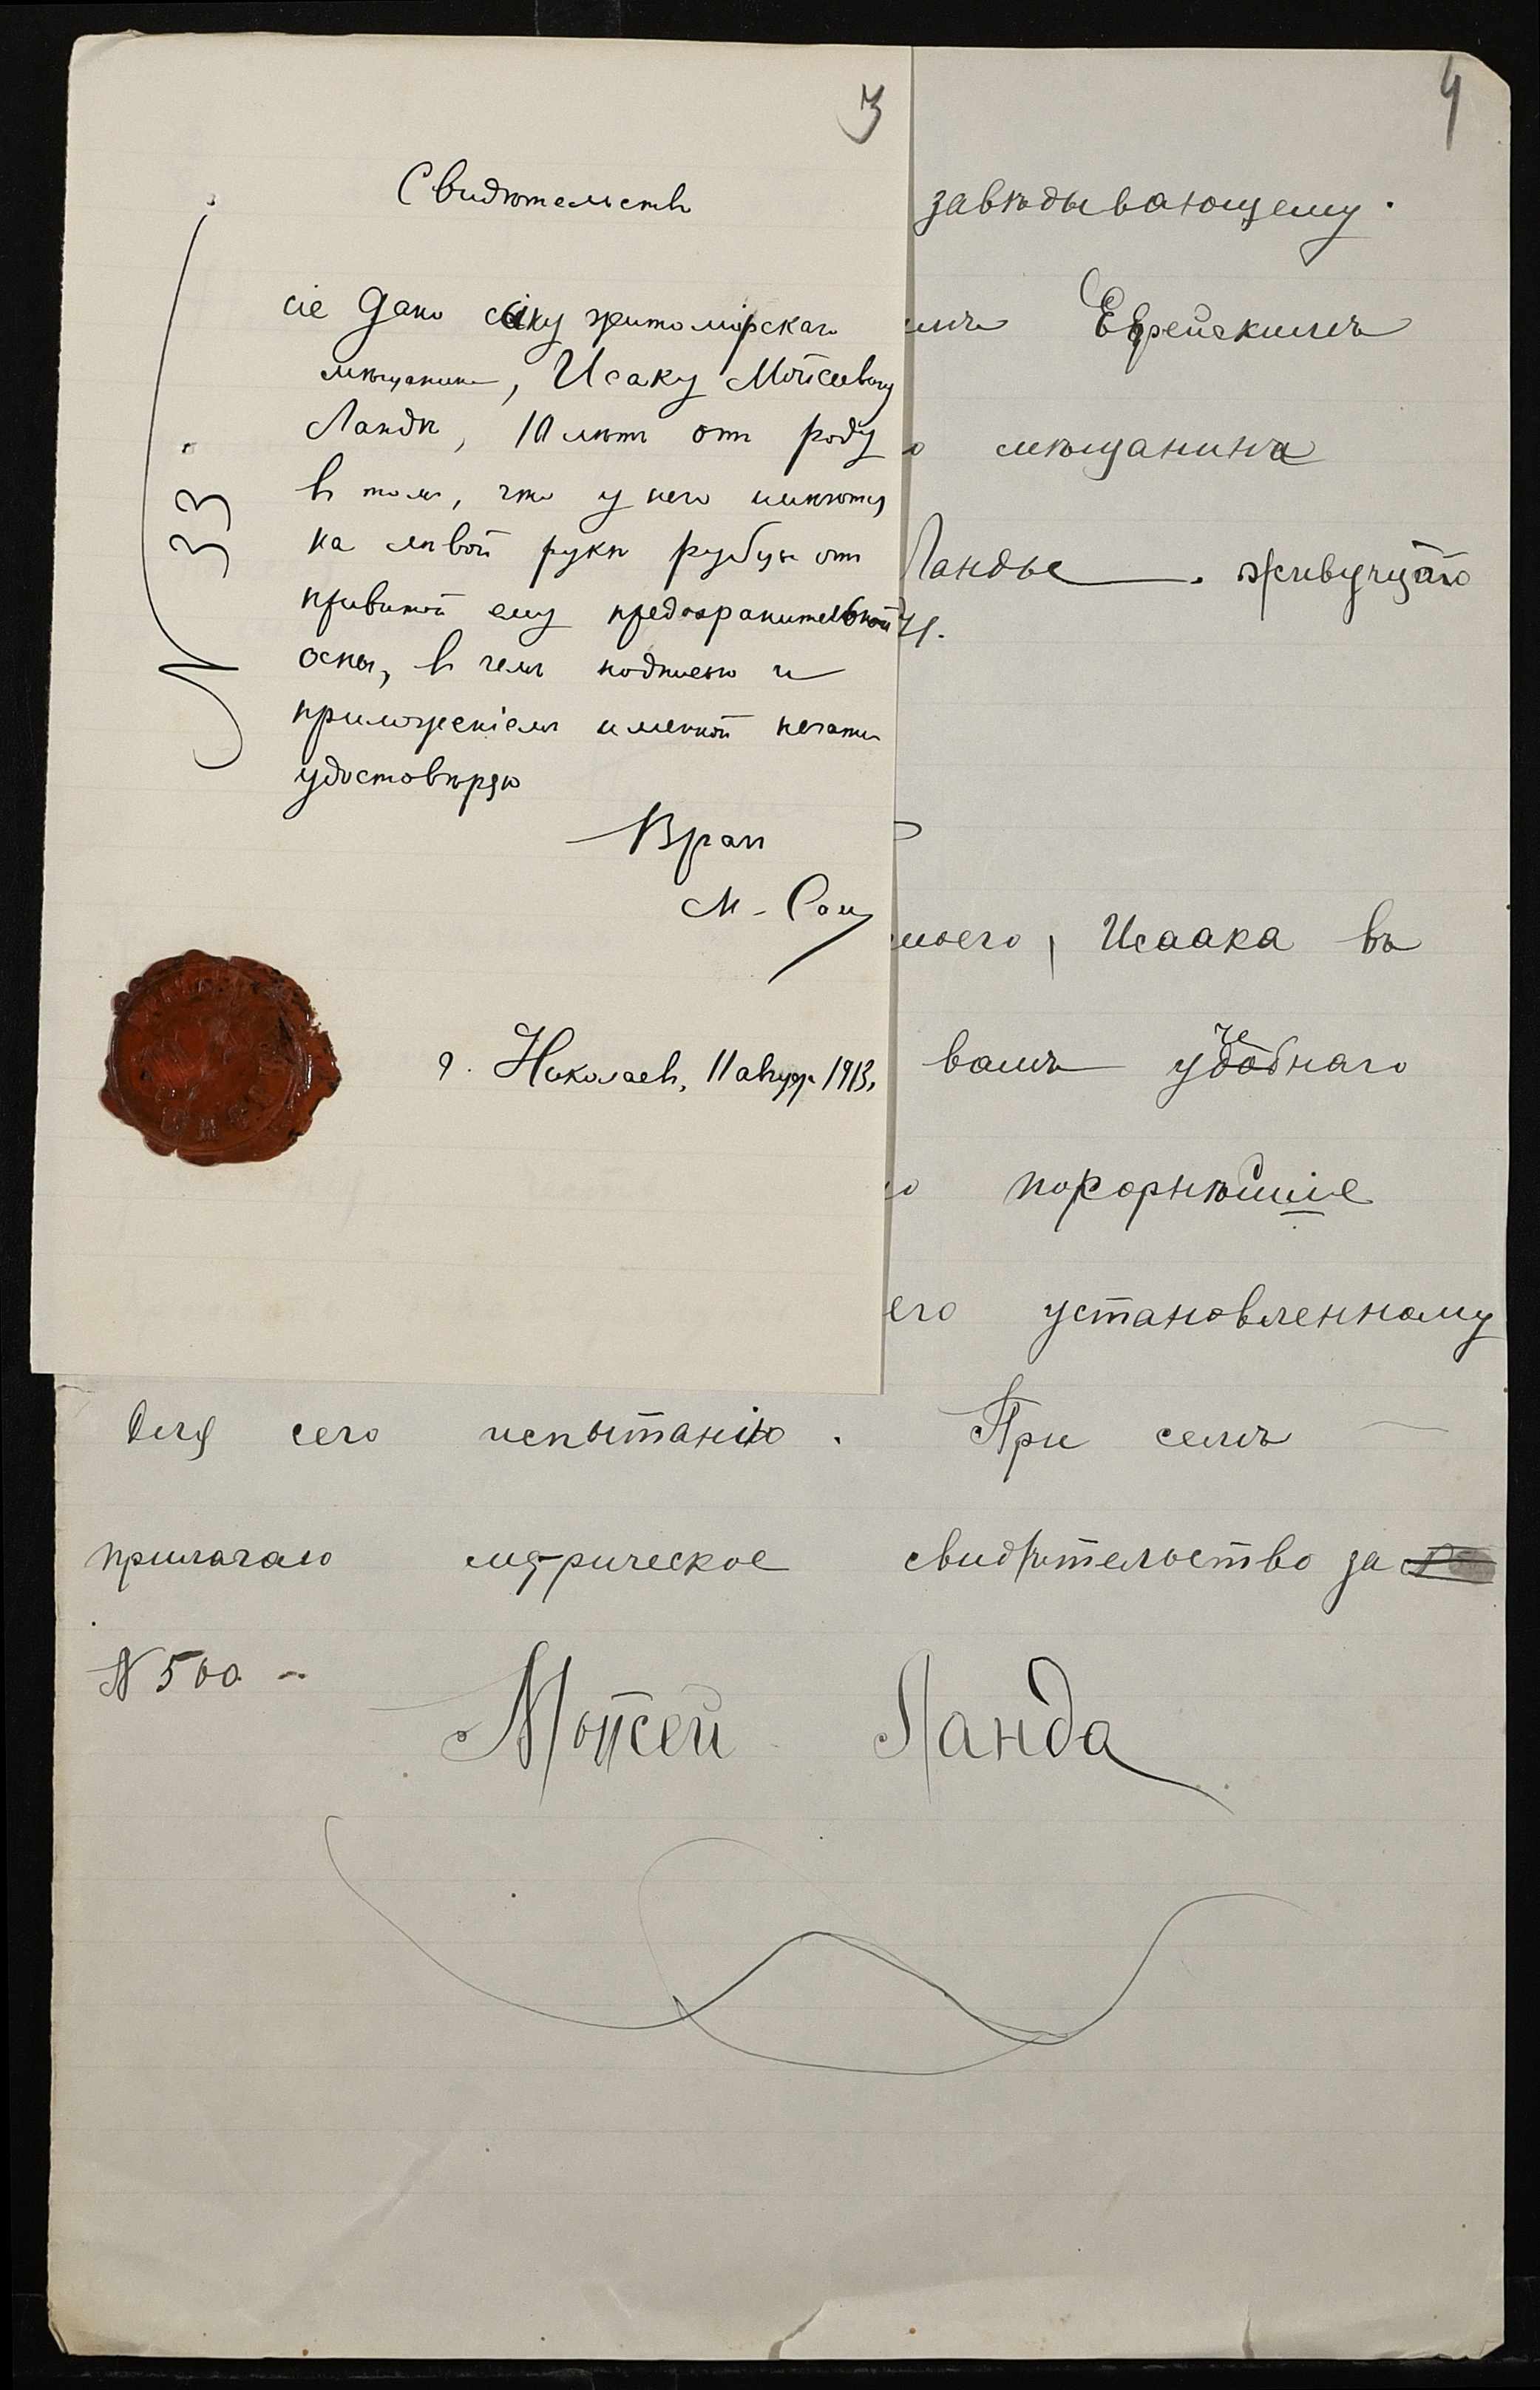 3
Свидѣтельство
сіе дано сыну житомірскаго
мѣщанина, Исаку Мойсеевичу
Ландѣ, 10 лѣтъ отъ роду
въ томъ, что у него имѣются
на лѣвой рукѣ рубцы отъ
привитой ему предохранительной
оспы, въ чемъ подписью и
приложеніемъ именной печати
удостовѣряю
Врач
г. Николаевъ, 11 августа 1913
N 33.
4
завѣдывающему.
Еврейскимъ
мѣщанина
Ланды живущаго
моего, Исаака въ
вамъ учебнаго
покорнѣйше
его установленному
для сего испытанію. При семъ
прилагаю метрическое свидѣтельство за
N 500 –
Мойсей Ланда